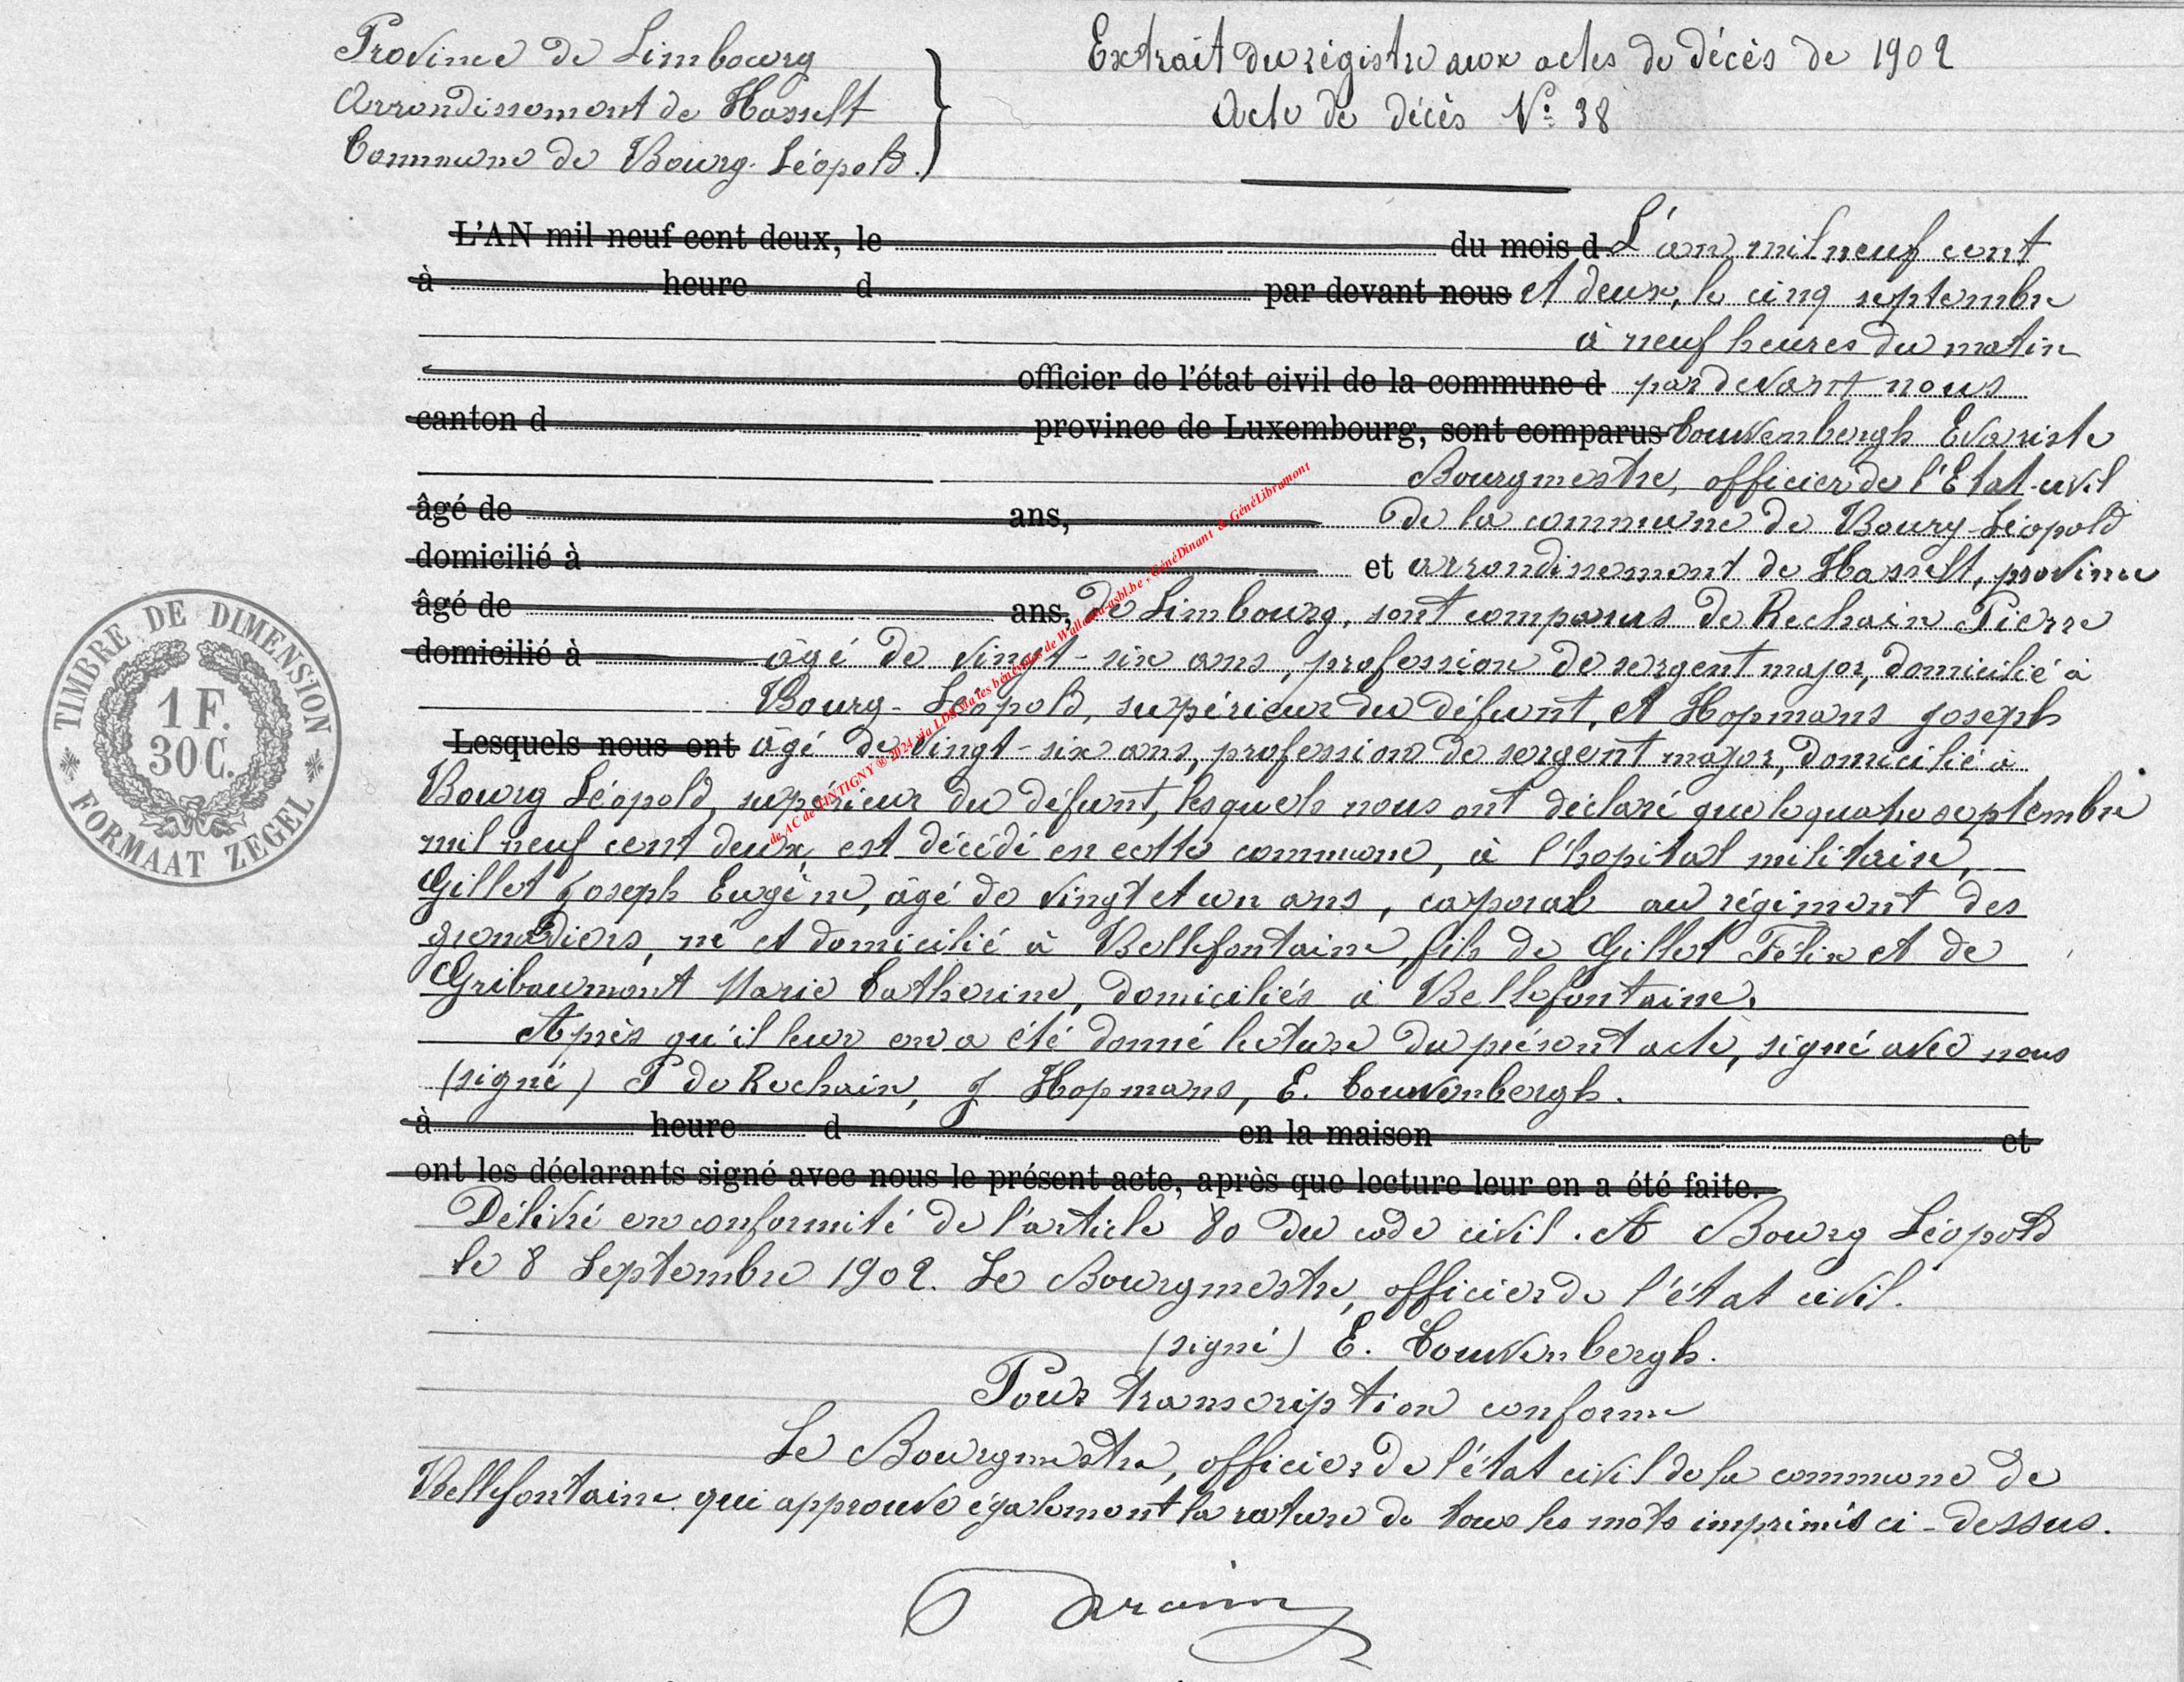 Province de Limbourg
Arrondissement de Hasselt
Commune de Bourg-Léopold.
Extrait du régistre aux actes de décès de 1902
Acte de décès No: 38
L'AN mil neuf cent deux, le du mois d L'an mil neuf cent
à heure d par devant nous et deux, le cinq septembre
à neuf heures du matin
officier de l'état civil de la commune d par devant nous
canton d province de Luxembourg, sont comparus Couwenbergh Evariste
Bourgmestre, officier de l'Etat-civil
âgé de ans, de la commune de Bourg-Léopold
domicilié à et arrondissement de Hasselt, province
âgé de ans, de Limbourg, sont comparus de Rechain Pierre
domicilié à âgé de vingt-six ans, profession de sergent major, domicilié à
Bourg-Léopold, supérieur du défunt, et Hopmans Joseph
Lesquels nous ont âgé de vingt-six ans, profession de sergent major, domicilié à
Bourg Léopold, supérieur du défunt, lesquels nous ont déclaré que le quatre septembre
mil neuf cent deux, est décédé en cette commune, à l'hopital militaire,
Gillet Joseph Eugène, âgé de vingt et un ans, caporal au régiment des
grenadiers, né et domicilié à Bellefontaine, fils de Gillet Félix et de
Gribaumont Marie Catherine, domiciliés à Bellefontaine.
Après qu'il leur en a été donné lecture du présent acte, signé avec nous
(signé) P de Rechain, J Hopmans, E. Couwenbergh.
à heure d en la maison et
ont les déclarants signé avec nous le présent acte, après que lecture leur en a été faite.
Délivré en conformité de l'article 80 du code civil. A Bourg Léopold
le 8 Septembre 1902. Le Bourgmestre, officier de l'état civil.
(signé) E. Couwenbergh.
Pour transcription conforme
Le Bourgmestre, officier de l'état civil de la commune de
Bellefontaine qui approuve également la rature de tous les mots imprimés ci-dessus.
TIMBRE DE DIMENSION
1 F.
30 C.
FORMAAT ZEGEL
de AC de TINTIGNY @ 2024 via LDS via les bénévoles de Wallonia-asbl.be, GénéDinant & GénéLibramont